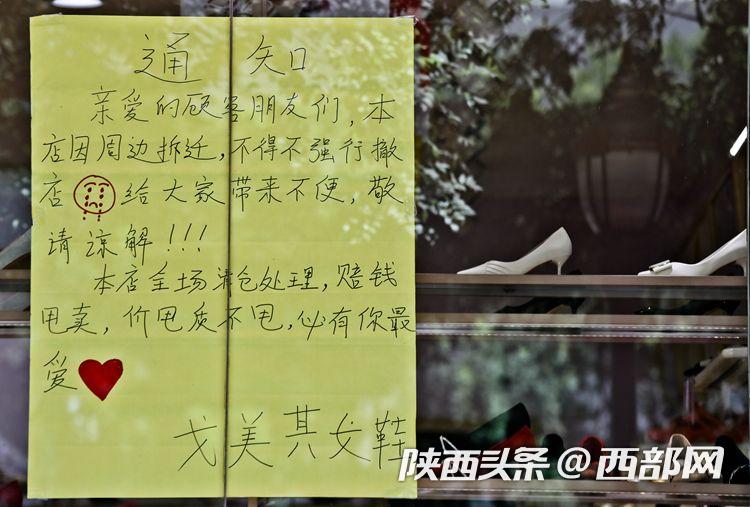 通 知
亲爱的顾客朋友们,本
店因周边拆迁,不得不强行撤
店 给大家带来不便,敬
请谅解!!!
本店全场清仓处理,赔钱
甩卖,价甩质不甩,必有你最
爱
戈美其女鞋
陕西头条@西部网